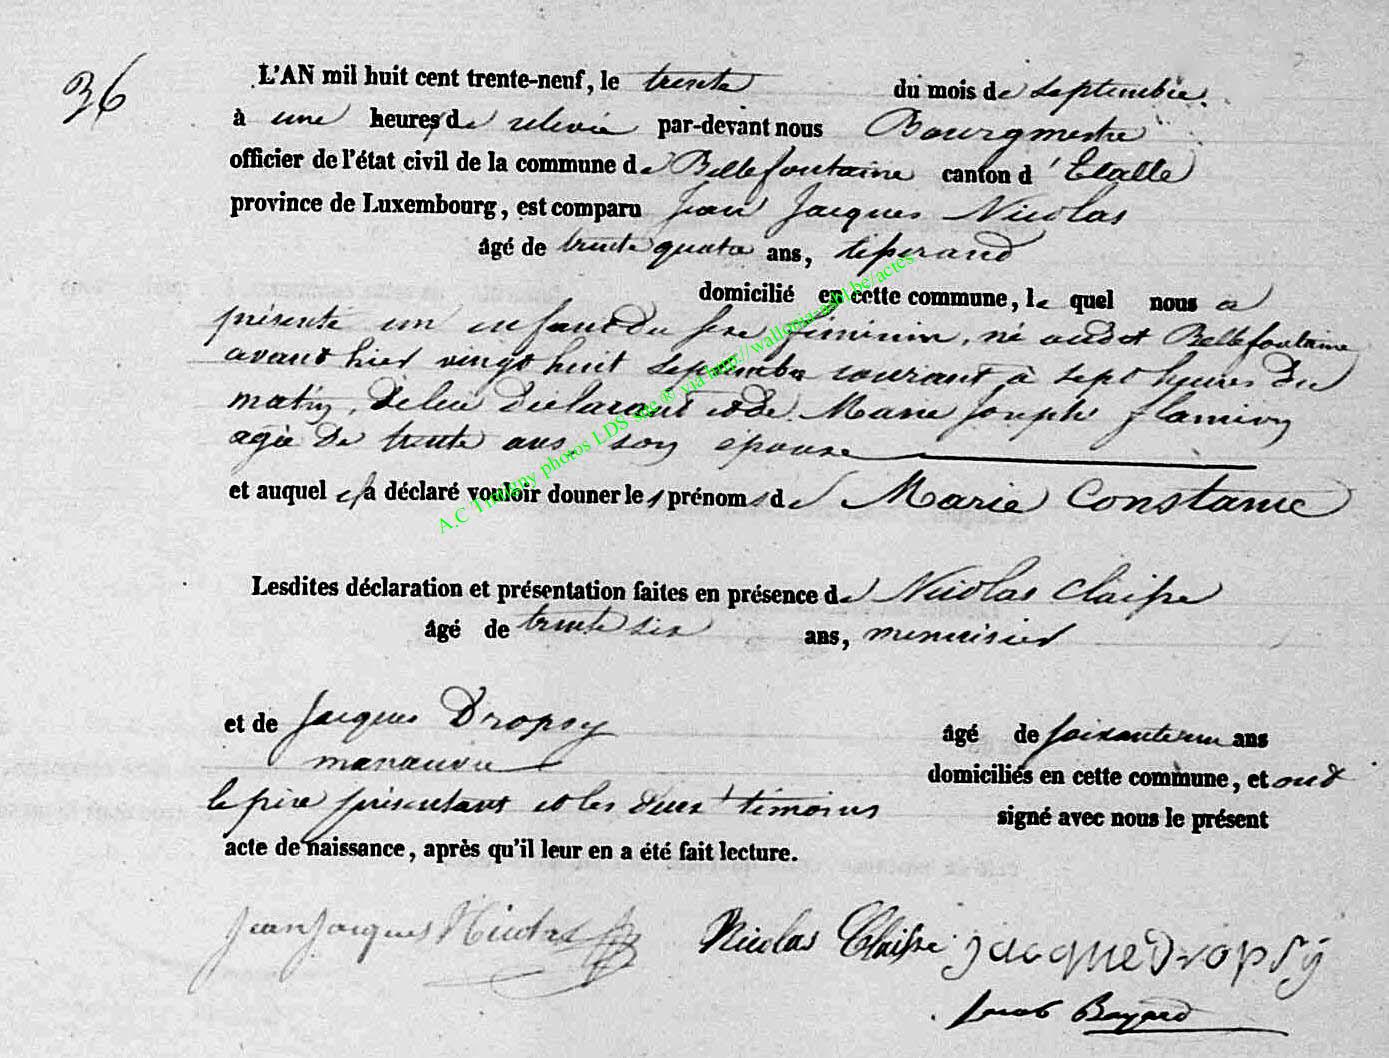 36
L'AN mil huit cent trente-neuf, le trente du mois de septembre
à une heures de relevée par-devant nous Bourgmestre
officier de l'état civil de la commune de Bellefontaine canton d'Etalle
province de Luxembourg, est comparu Jean Jacques Nicolas
âgé de trente quatre ans, tisserand
domicilié en cette commune, lequel nous a
présenté un enfant du sexe féminin, né audit Bellefontaine
avant hier vingt huit septembre courant, à sept heures du
matin, de lui déclarant et de Marie Josephe flamion
agée de trente ans son épouse
et auquel il a déclaré vouloir donner les prénoms de Marie Constance
Lesdites déclaration et présentation faites en présence de Nicolas Claisse
âgé de trente six ans, menuisier
et de Jacques Dropsy âgé de soixante un ans
manœuvre domiciliés en cette commune, et ont
le père présentant et les deux témoins signé avec nous le présent
acte de naissance, après qu'il leur en a été fait lecture.
Jean Jacques Nicolas Nicolas Claisse jacque Dropsÿ
Jacob Bayard
A.C Tintigny photos LDS site ® via http://wallonia-asbl.be/actes